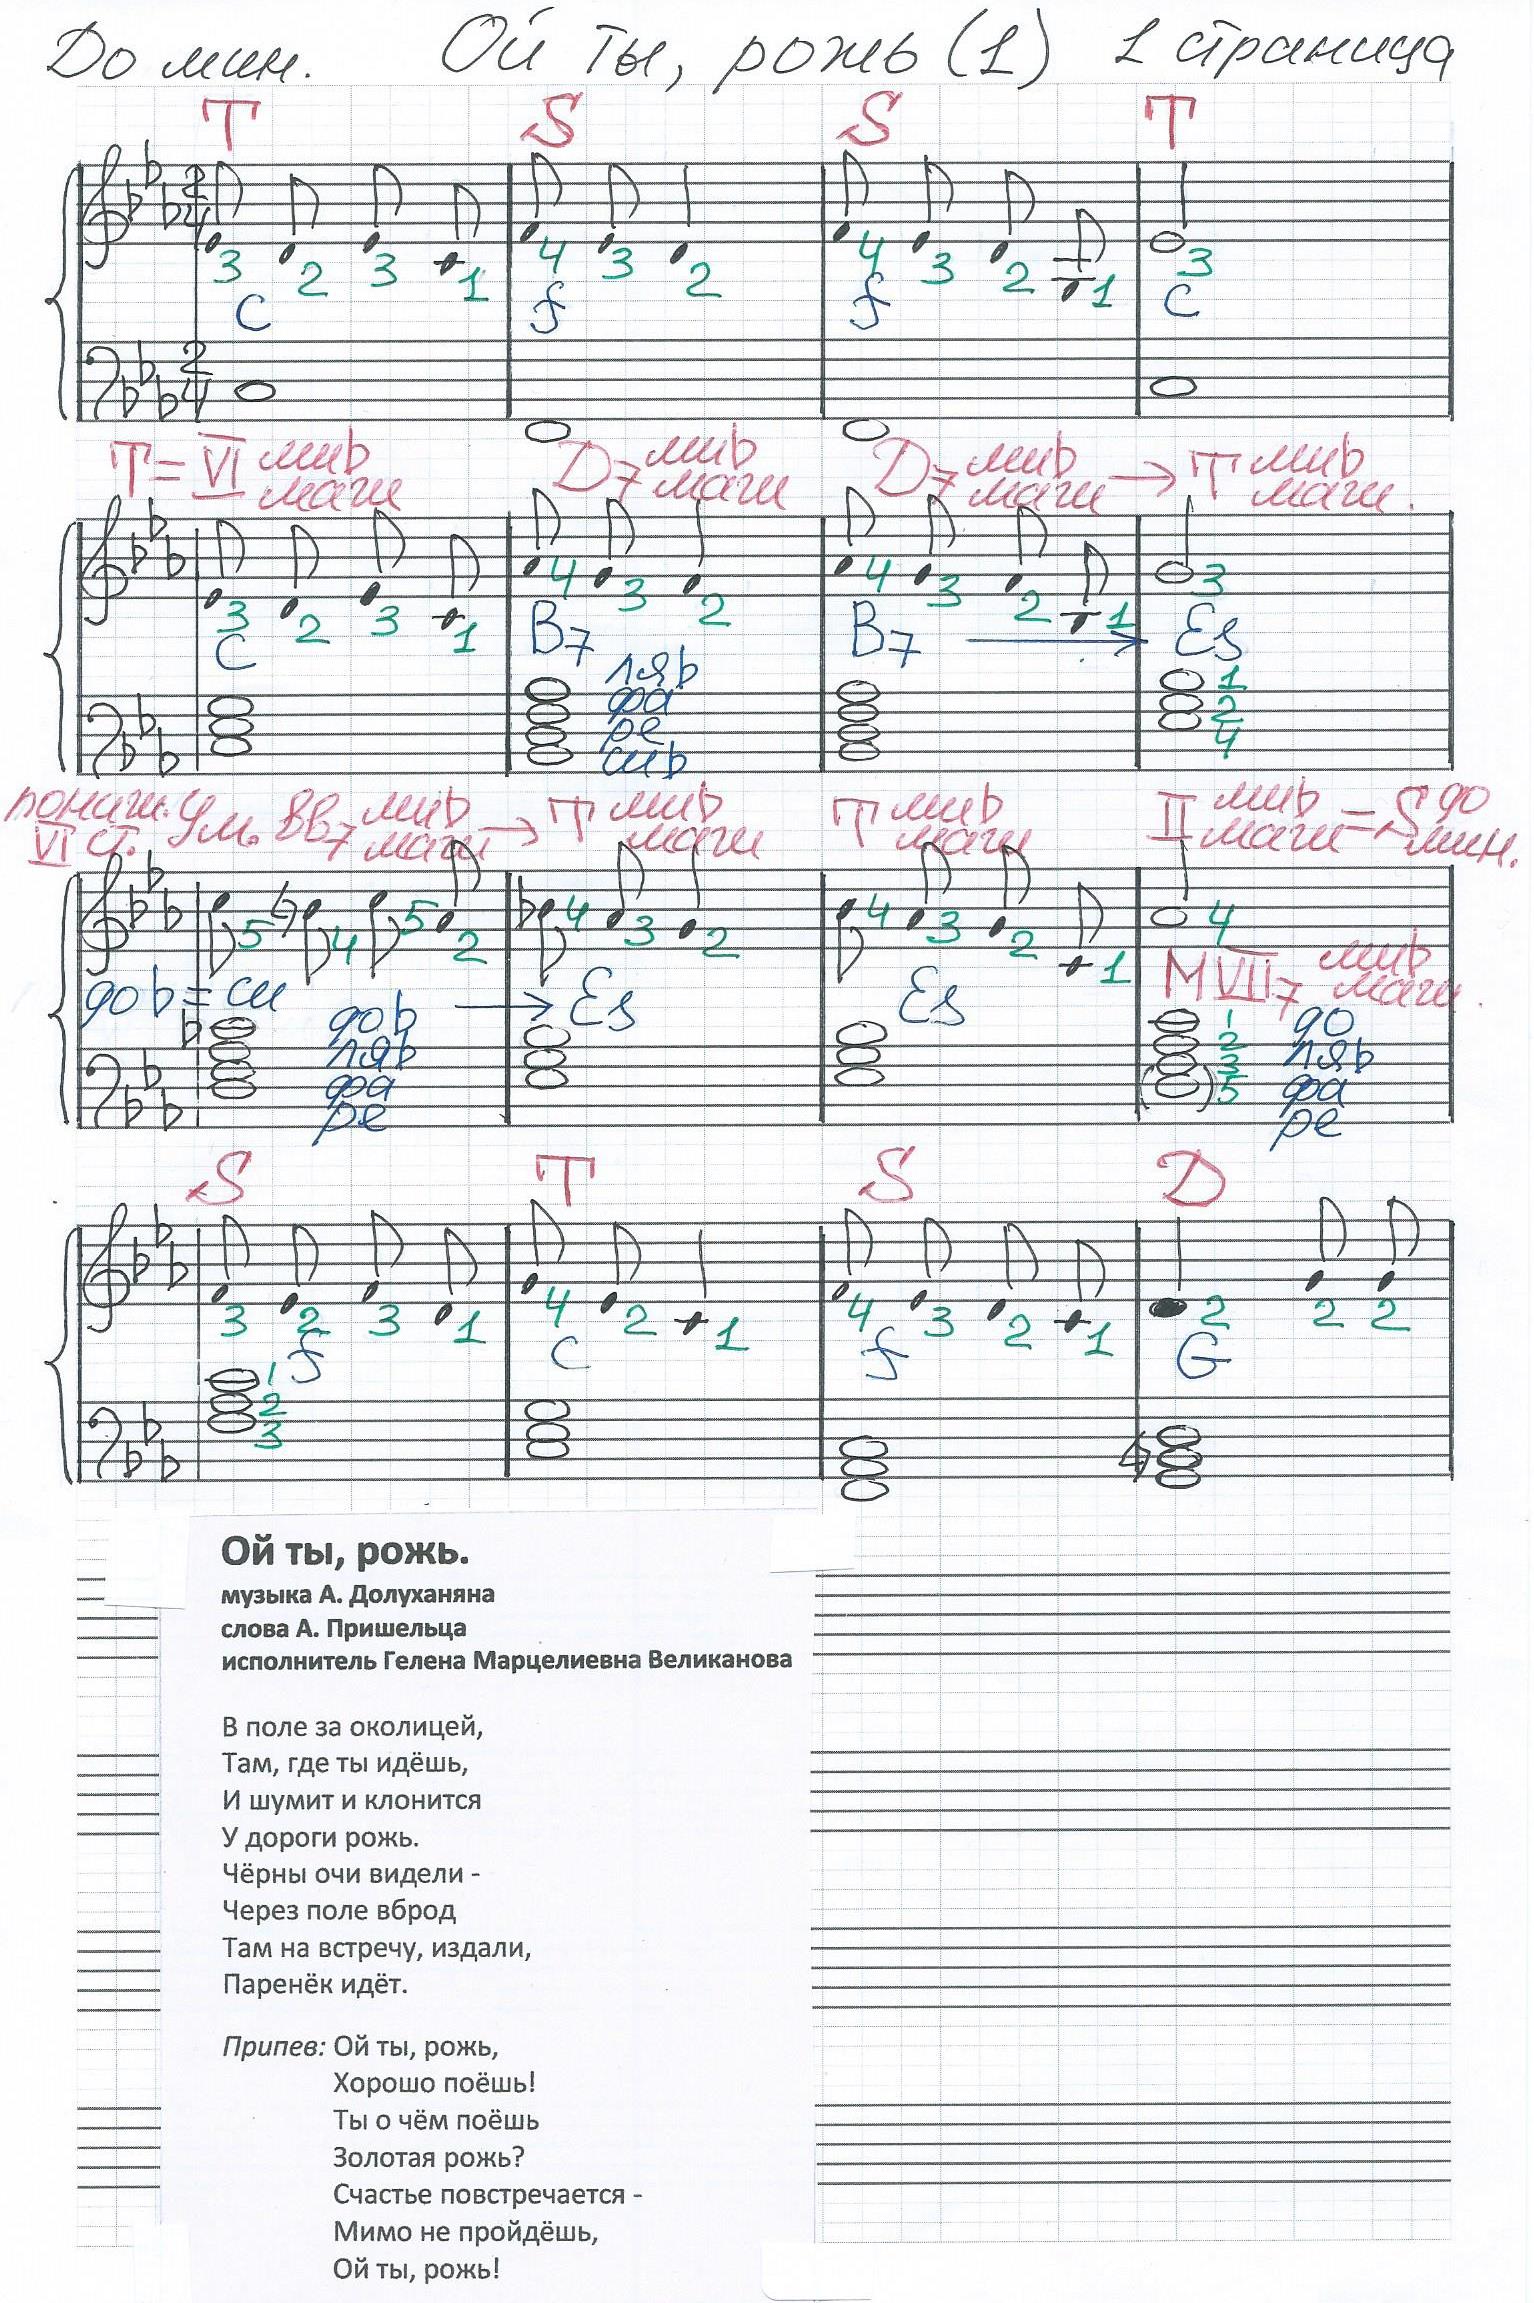 До мин. Ой ты, рожь (1) 1 страница
T S S T
2 4
3 2 3 1 4 3 2 4 3 2 1 3
C f f C
2 4
T = VI миb маж D7 миb маж D7 миb маж → T миb маж.
3 2 3 1 4 3 2 4 3 2 1 3
C B7 B7 → Es
ляb
фа
ре
сиb
1
2
4
пониж. VI ст. Ум. Вв7 миb маж → T миb маж T миb маж II миb маж = S до мин.
5 4 5 2 4 3 2 4 3 2 1 4
доb = си → Es Es МVII7 миb маж.
доb
ляb
фа
ре
1 до
2 ляb
3 фа
5 ре
S T S D
3 2 3 1 4 2 1 4 3 2 1 2 2 2
f C f G
1
2
3
Ой ты, рожь.
музыка А. Долуханяна
слова А. Пришельца
исполнитель Гелена Марцелиевна Великанова
В поле за околицей,
Там, где ты идёшь,
И шумит и клонится
У дороги рожь.
Чёрны очи видели -
Через поле вброд
Там на встречу, издали,
Паренёк идёт.
Припев: Ой ты, рожь,
Хорошо поёшь!
Ты о чём поёшь
Золотая рожь?
Счастье повстречается -
Мимо не пройдёшь,
Ой ты, рожь!